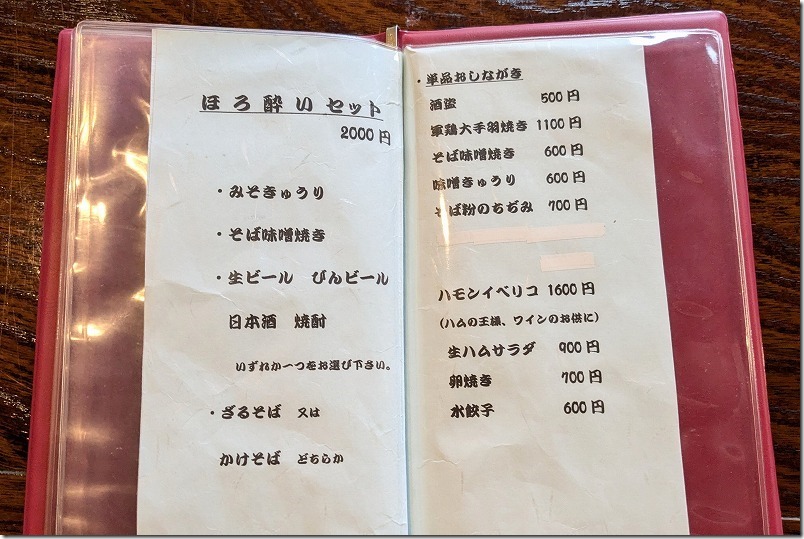 ほろ酔いセット
2000円
・みそきゅうり
・そば味噌焼き
・生ビール びんビール
日本酒 焼酎
いずれか一つをお選び下さい。
・ざるそば 又は
かけそば どちらか
・単品おしながき
酒盗 500円
軍鶏大手羽焼き 1100円
そば味噌焼き 600円
味噌きゅうり 600円
そば粉のちぢみ 700円
ハモンイベリコ 1600円
(ハムの王様、ワインのお供に)
生ハムサラダ 900円
卵焼き 700円
水餃子 600円